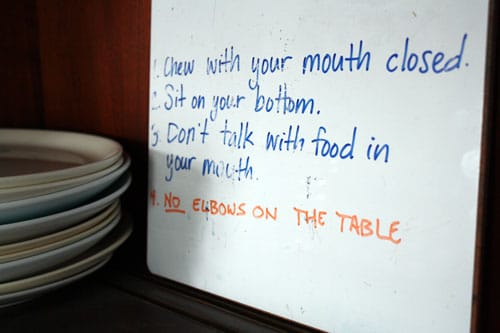 1. Chew with your mouth closed.
2. Sit on your bottom.
3. Don't talk with food in
your mouth.
4. NO ELBOWS ON THE TABLE